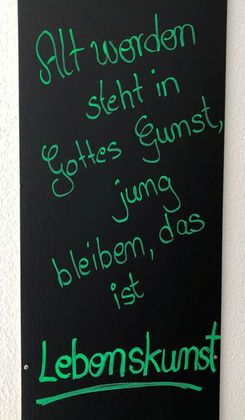 Alt werden
steht in
Gottes Gunst,
jung
bleiben, das
ist
Lebenskunst